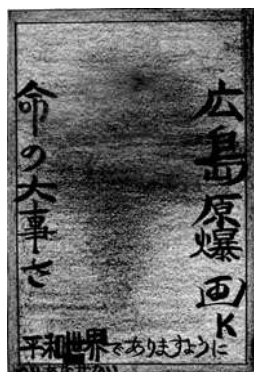 広島原爆画K
命の大事さ
平和世界でありますように